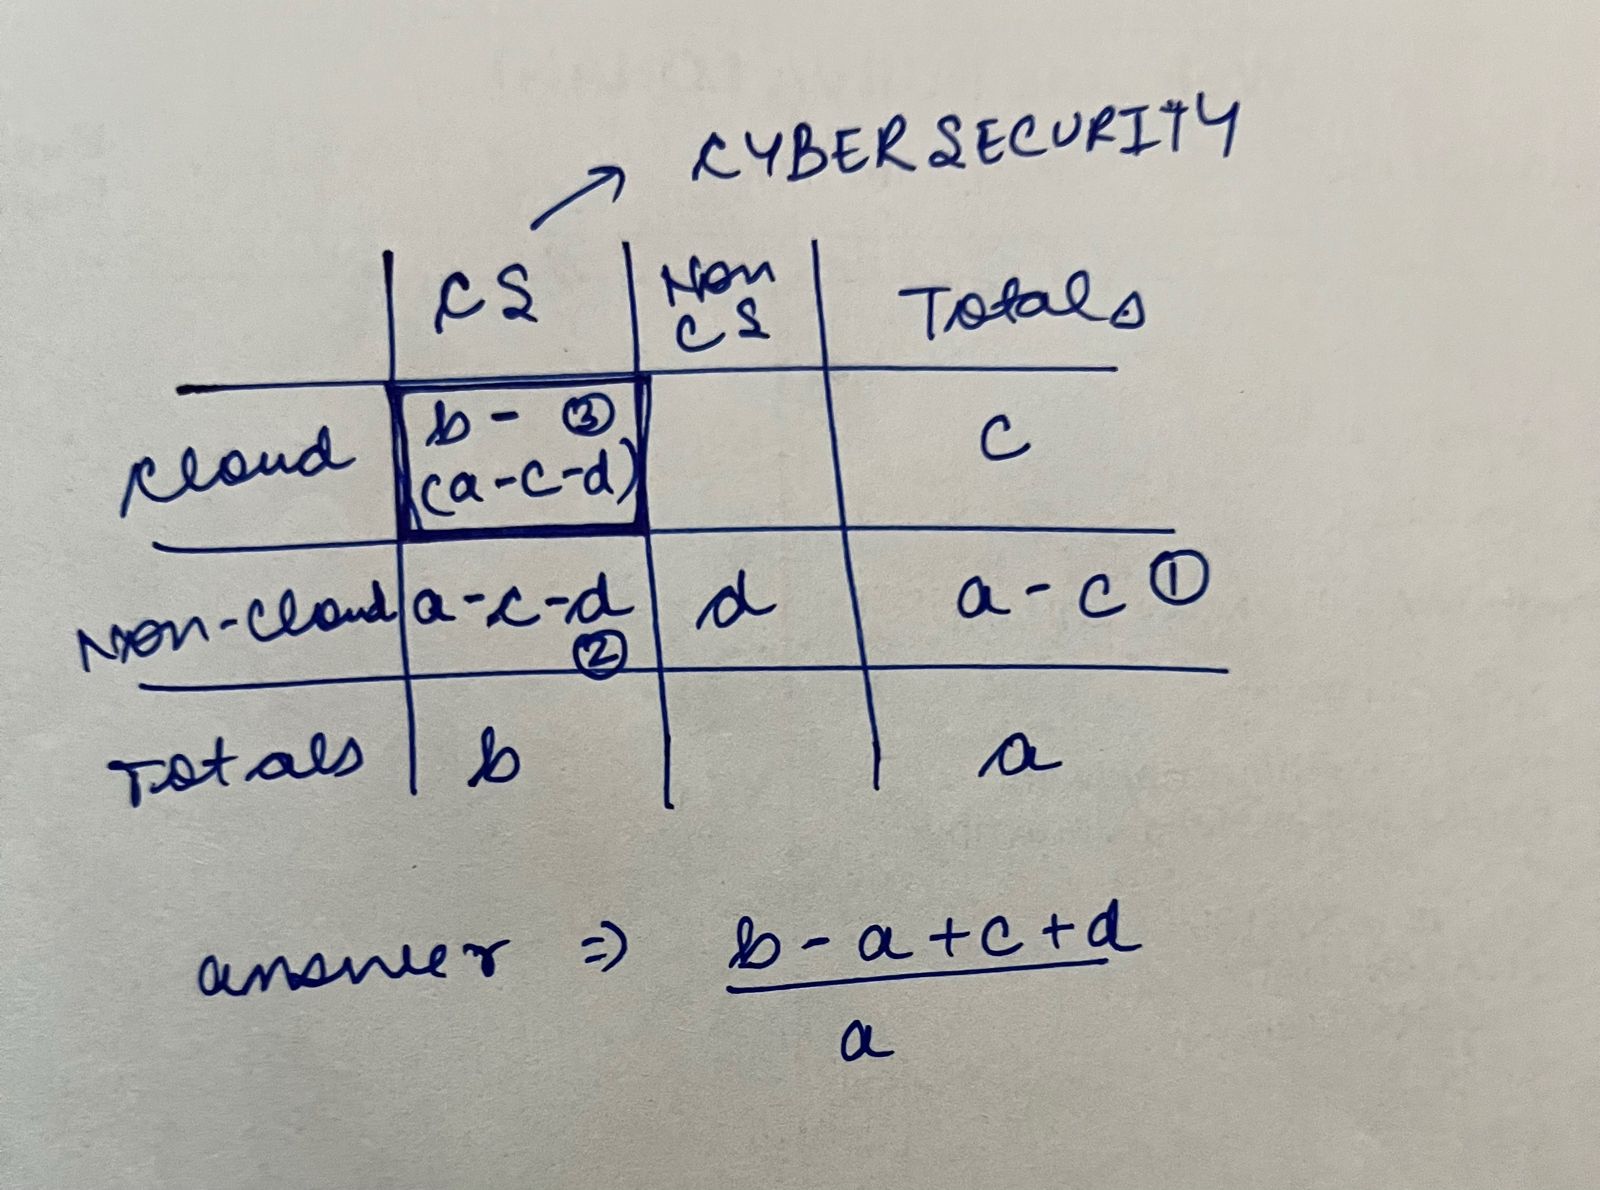 CYBERSECURITY
CS Non CS Totals
Cloud b - ③ (a-c-d) c
Non-Cloud a-c-d ② d a - c ①
Totals b a
answer ⇒ b - a + c + d
a